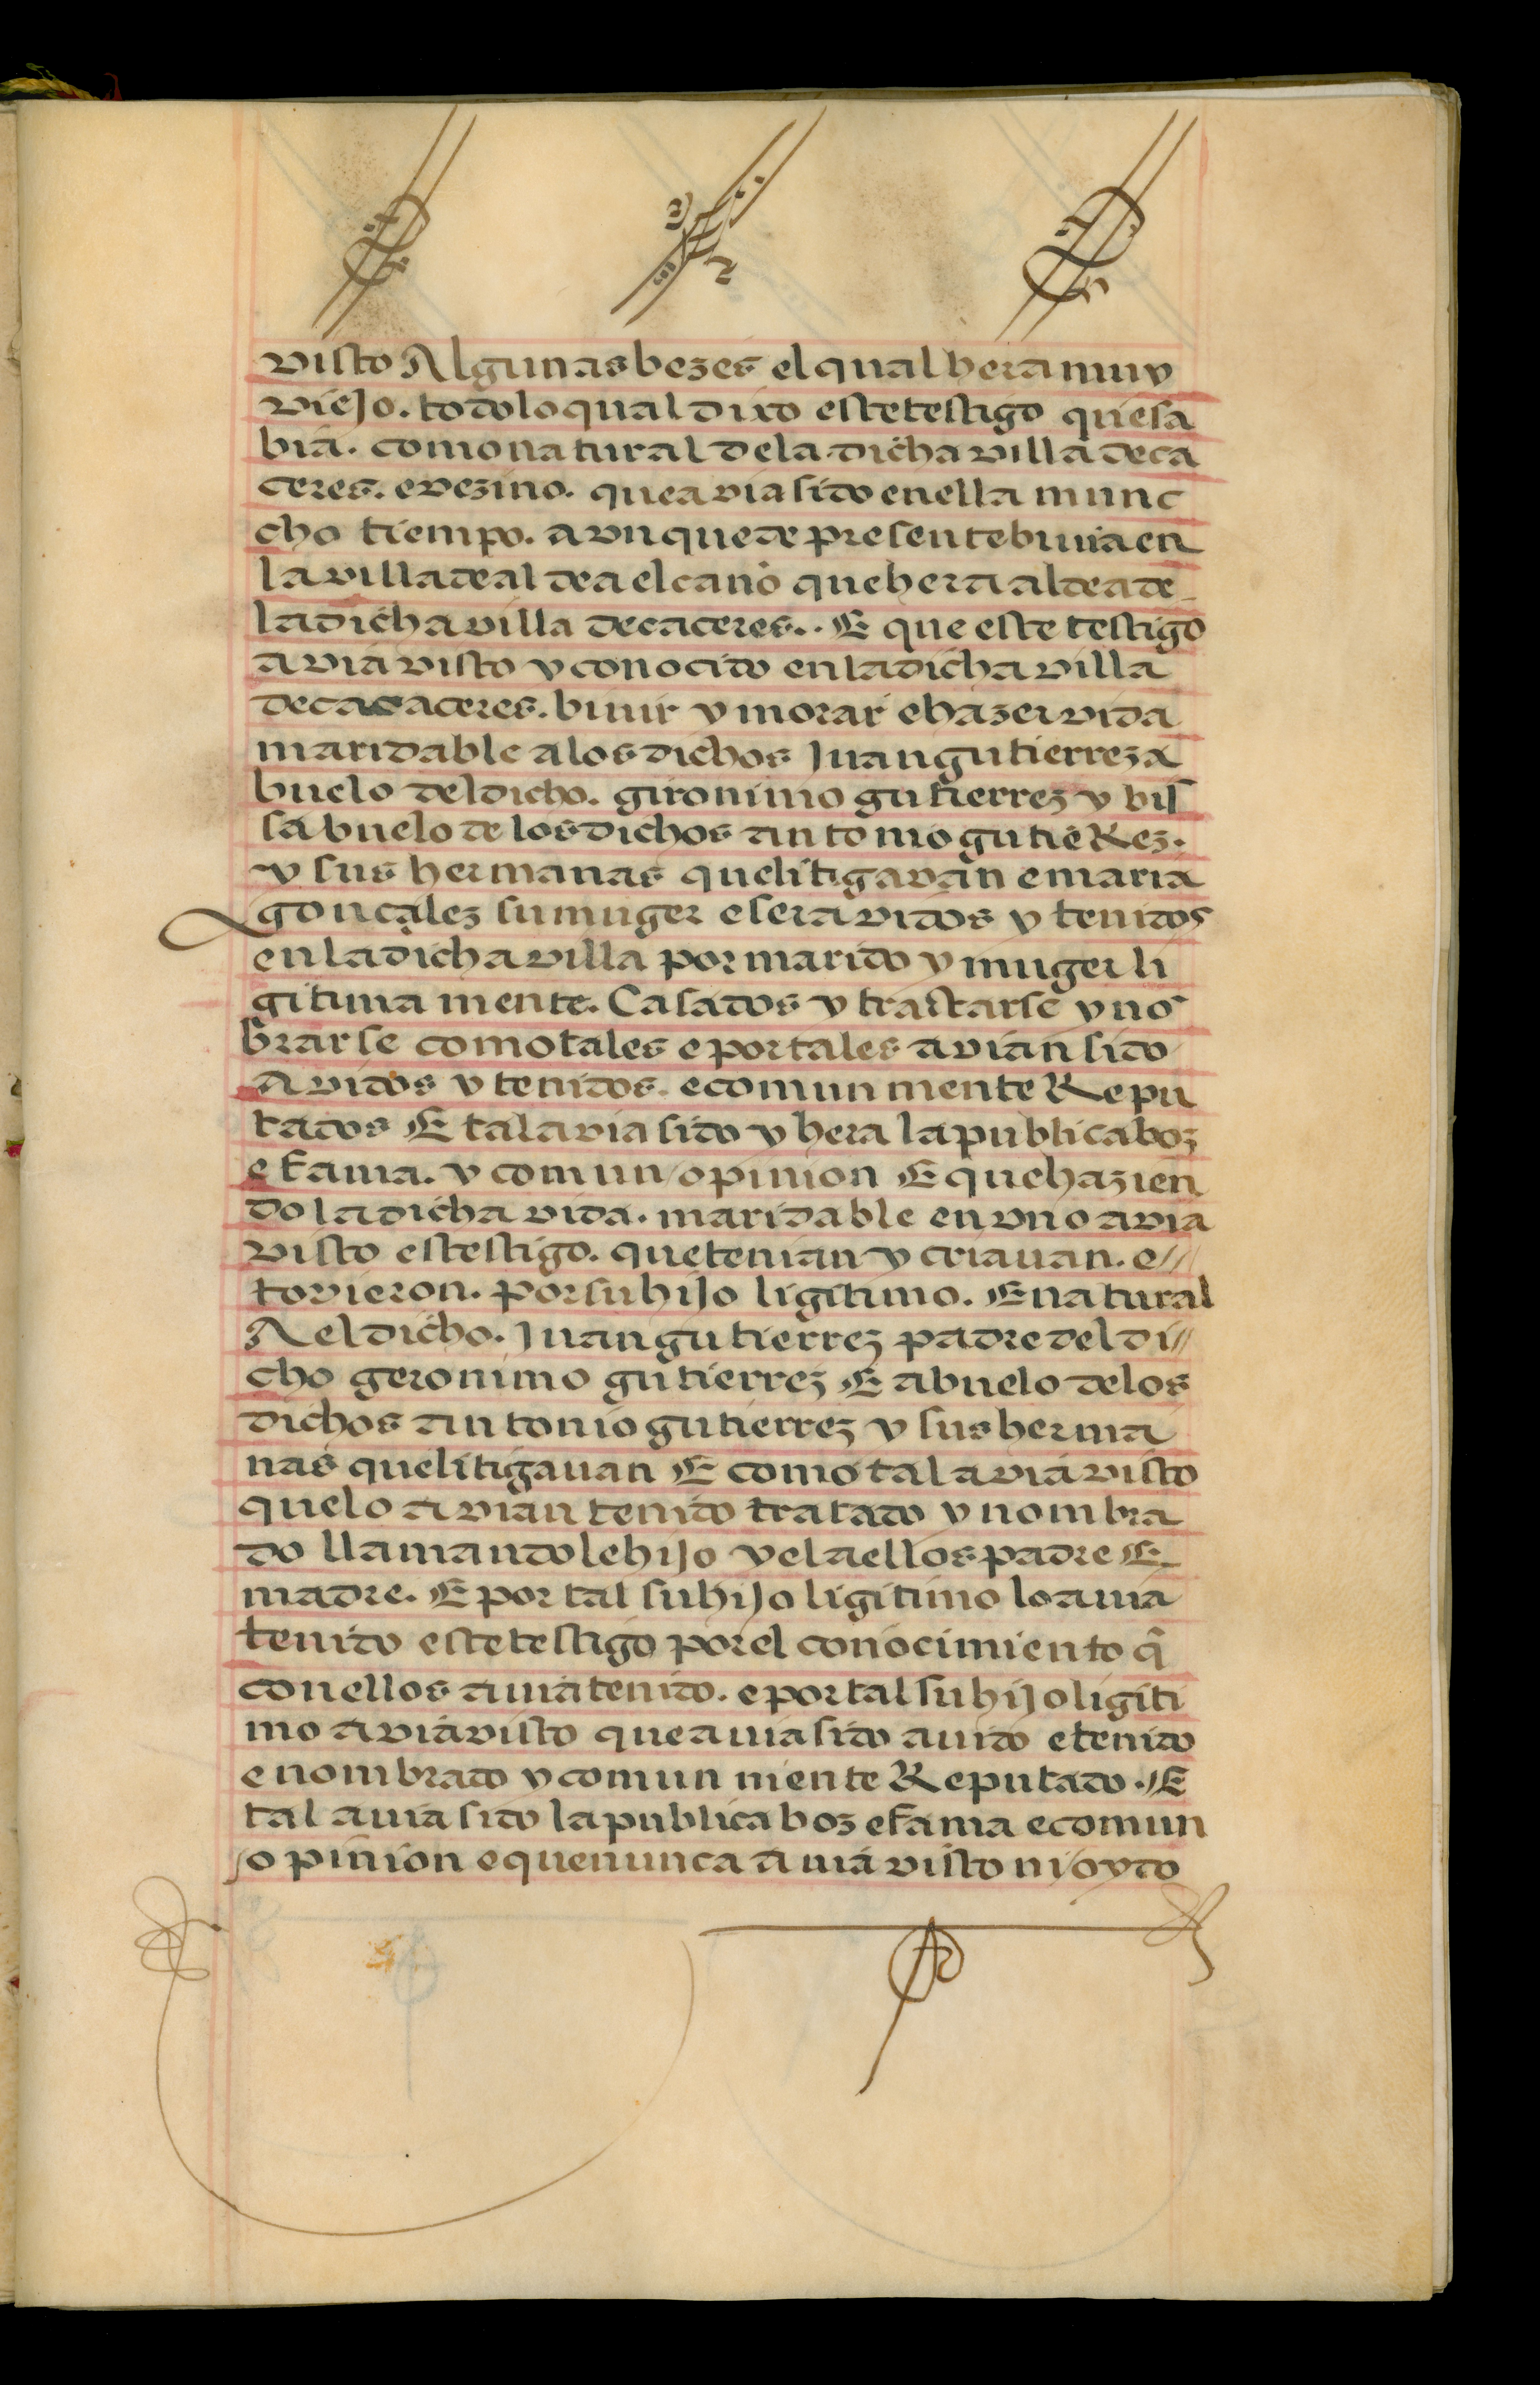 visto Algunas bezes el qual hera muy
viejo. todo lo qual dixo este testigo que sa
bia. como natural dela dicha villa de ca
ceres. e vezino. que avia sido en ella munc
cho tiempo. avn que de presente biuia en
la villa de aldea el cano que hera aldea de
la dicha villa de caceres.. E que este testigo
avia visto y conocido en la dicha villa
de cacaceres. biuir y morar e hazer vida
maridable a los dichos Juan gutierrez a
buelo del dicho. gironimo gutierrez y bis
sabuelo de los dichos antonio gutieRez.
y sus hermanas que litigavan e maria
gonçalez su muger e ser avidos y tenidos
en la dicha villa por marido y muger li
gitima mente. Casados y tractarse y nō
brarse como tales e por tales avian sido
avidos y tenidos. e comun mente Repu
tados E tal avia sido y hera la publica boz
e fama. y comun opinion E que hazien
do la dicha vida. maridable en vno avia
visto estestigo. que tenian y criauan. e//
tovieron. por su hijo ligitimo. E natural
A el dicho. Juan gutierrez padre del di//
cho geronimo gutierrez E abuelo de los
dichos antonio gutierrez y sus herma
nas que litigauan E como tal avia visto
que lo avian tenido tratado y nombra
do llamandole hijo y el a ellos padre E
madre. E por tal su hijo ligitimo lo auia
tenido este testigo por el conocimiento q̃
con ellos auia tenido. e por tal su hijo ligiti
mo avia visto que auia sido auido e tenido
e nombrado y comun mente Reputado. E
tal auia sido la publica boz e fama e comun
opinion e que nunca auia visto ni oydo